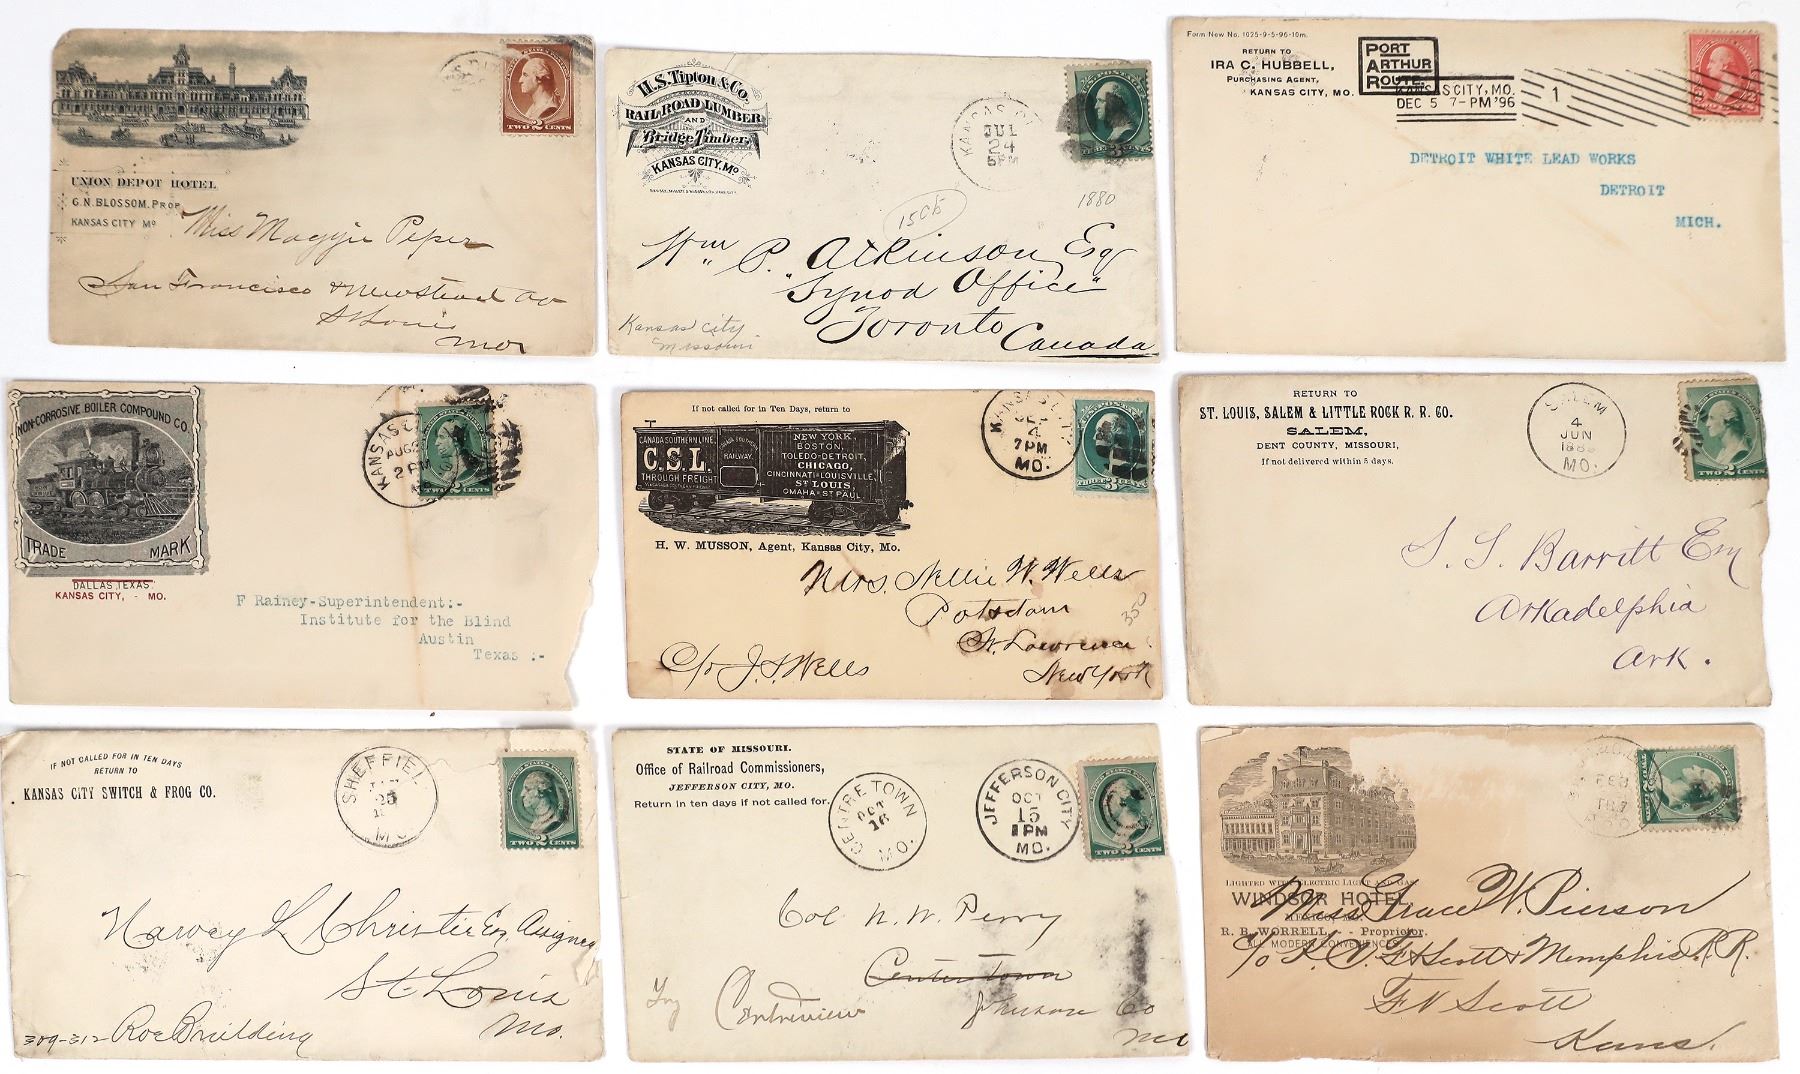 UNION DEPOT HOTEL
G.N. BLOSSOM, PROP.
KANSAS CITY Mo
TWO 2 CENTS
Miss Maggie Peper
San Francisco & Newstead Av
St Louis
Mo
H.S. Tipton & Co.
RAIL ROAD LUMBER
AND
Bridge Timber,
KANSAS CITY, Mo.
KANSAS CITY
JUL
24
5PM
1880
15 Cts
Wm P. Atkinson Esq
"Synod Office"
Toronto
Canada
Kansas City
Missouri
Form New No. 1025-9-5-96-10m.
RETURN TO
IRA C. HUBBELL,
PURCHASING AGENT,
KANSAS CITY, MO.
PORT
ARTHUR
ROUTE
KANSAS CITY, MO.
DEC 5 7-PM '96
1
DETROIT WHITE LEAD WORKS
DETROIT
MICH.
NON-CORROSIVE BOILER COMPOUND CO.
TRADE MARK
DALLAS, TEXAS,
KANSAS CITY, - MO.
KANSAS C
AUG
2 PM
TWO 2 CENTS
F Rainey-Superintendent:-
Institute for the Blind
Austin
Texas :-
If not called for in Ten Days, return to
CANADA SOUTHERN LINE
C.S.L.
THROUGH FREIGHT
CANADA SOUTHERN
RAILWAY.
NEW YORK,
BOSTON,
TOLEDO-DETROIT,
CHICAGO,
CINCINNATI-LOUISVILLE,
ST LOUIS,
OMAHA-ST PAUL
H. W. MUSSON, Agent, Kansas City, Mo.
KANSAS CITY
4
7 PM
MO.
THREE 3 CENTS
Mrs. Nellie W. Wells
Potsdam
St. Lawrence
New York
C/o J. S. Wells
350
RETURN TO
ST. LOUIS, SALEM & LITTLE ROCK R. R. CO.
SALEM,
DENT COUNTY, MISSOURI,
If not delivered within 5 days.
SALEM
4
JUN
MO.
TWO 2 CENTS
S. S. Barritt Esq
Arkadelphia
Ark.
IF NOT CALLED FOR IN TEN DAYS
RETURN TO
KANSAS CITY SWITCH & FROG CO.
SHEFFIEL
25
MO
TWO 2 CENTS
Harvey L Christie Esq. Assignee
St Louis
Mo.
309-312 Roe Building
STATE OF MISSOURI.
Office of Railroad Commissioners,
JEFFERSON CITY, MO.
Return in ten days if not called for.
CENTRETOWN
OCT
16
MO.
JEFFERSON CITY
OCT
15
1 PM
MO.
Col N. W. Perry
Center Town
Try Centreview
Johnson Co
Mo
LIGHTED WITH ELECTRIC LIGHT AND GAS
WINDSOR HOTEL,
MEXICO, MO.
R. B. WORRELL, - - Proprietor.
ALL MODERN CONVENIENCES
FEB
1887
Miss Grace W. Pierson
C/o K. C. Ft Scott & Memphis R.R.
Ft Scott
Kans.